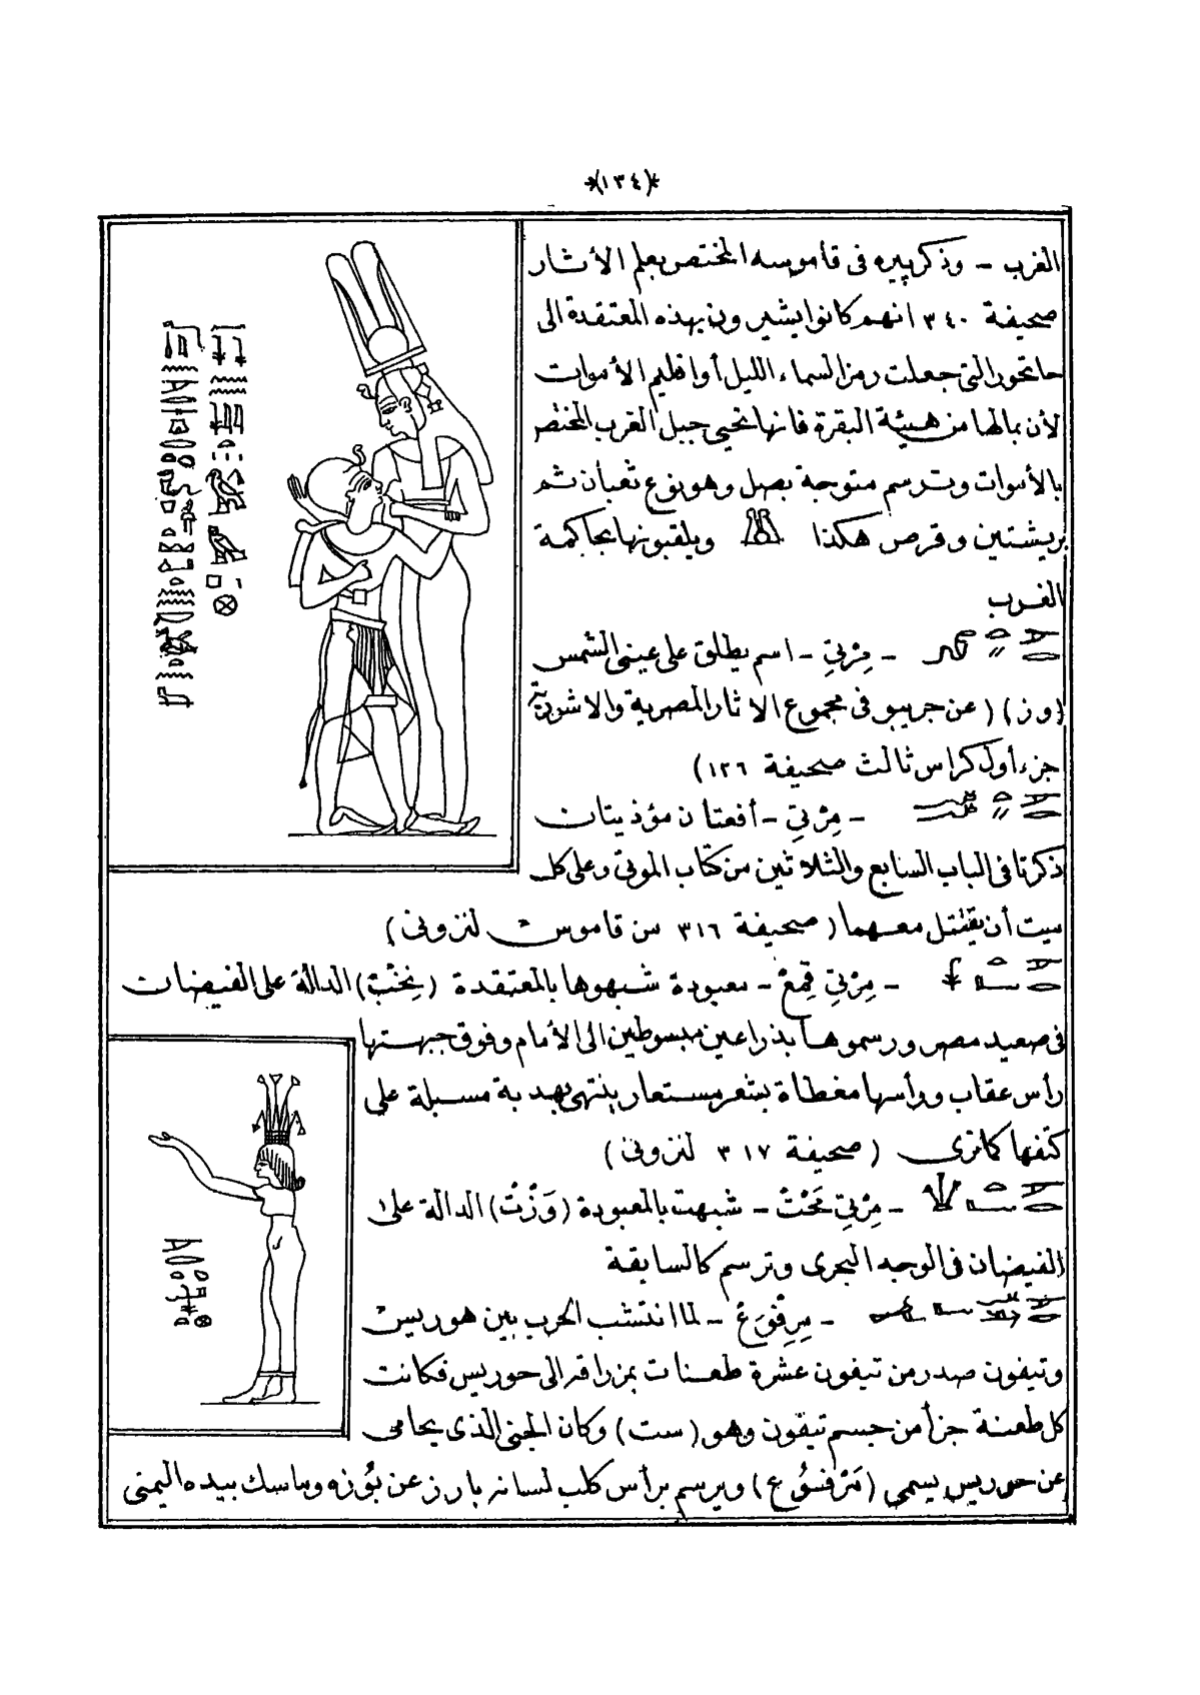 *(١٣٤)*
الغرب - وذكر پيره فى قاموسه المختص بعلم الأثار
صحيفة ٣٤٠ انهم كانوا يشيرون بهذه المعتقدة الى
حاتحور التى جعلت رمز السماء الليل أو اقليم الأموات
لأن بمالها من هيئة البقرة فانها تحيى جبل الغرب المختص
بالأموات وترسم متوجة بصل وهو نوع ثعبان ثم
بريشتين وقرص هكذا ويلقبونها بحاكمة
الغرب
- مِرْتِى - اسم يطلق على عينى الشمس
(وز) (عن جريبو فى مجموع الاثار المصرية والاشورية
جزء أول كراس ثالث صحيفة ١٢٦)
- مِرْتِى - أفعتان مؤذيتان
ذكرتا فى الباب السابع والثلاثين من كتاب الموتى وعلى كل
ميت أن يقتتل معهما (صحيفة ٣١٦ من قاموس لنزونى)
- مِرْتِى قِمِعْ - معبودة شبهوها بالمعتقدة (نِخَبْ) الدالة على الفيضان
فى صعيد مصر ورسموها بذراعين مبسوطين الى الأمام وفوق جبهتها
رأس عقاب ورأسها مغطاة بشعر مستعار ينتهى بهدبة مسبلة على
كتفها كما ترى (صحيفة ٣١٧ لنزونى)
- مِرْتِى مَحْتْ - شبهت بالمعبودة (وَزْتْ) الدالة على
الفيضان فى الوجه البحرى وترسم كالسابقة
- لما انتشب الحرب بين هوريس
وتيفون صدر من تيفون عشرة طعنات بمزراقه الى حوريس فكانت
كل طعنة جزأ من جسم تيفون وهو (ست) وكان الجنى الذى يحامى
عن حوريس يسمى ويرسم برأس كلب لسانه بارز عن بُوزه وماسك بيده اليمنى